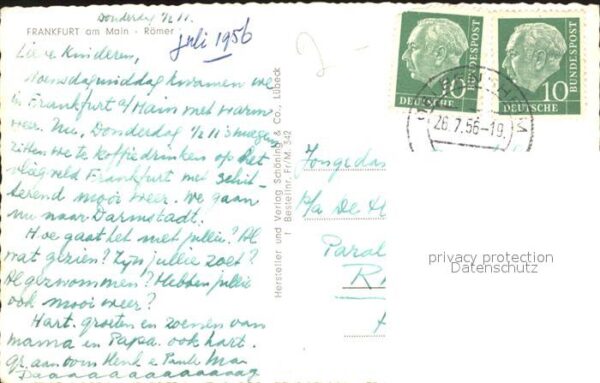 Donderdag ½ 11.
FRANKFURT am Main - Römer
juli 1956
Lieve Kinderen,
Woensdagmiddag kwamen we
in Frankfurt a/Main met warm
weer. Nu, Donderdag ½ 11 's morgens
zitten we te koffiedrinken op het
vliegveld Frankfurt met schit-
terend mooi weer. We gaan
nu naar Darmstadt.
Hoe gaat het met jullie? Al
wat gezien? Zijn jullie zoet?
Al gezwommen? Hebben jullie
ook mooi weer?
Hart. groeten en zoenen van
mama en Papa. ook hart.
gr. aan oom Henk e
Hersteller und Verlag Schöning & Co., Lübeck
Bestellnr. Fr/M. 342
DEUTSCHE
BUNDESPOST
10
DEUTSCHE
BUNDESPOST
10
26.7.56-19
Jongeda
P/a de
Paral
R
privacy protection
Datenschutz